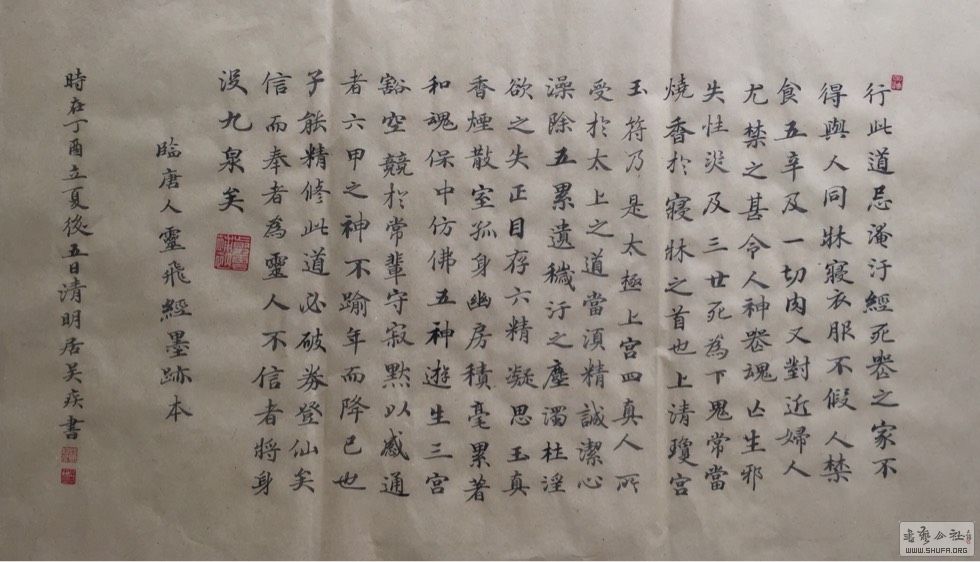 行此道忌淹汙經死喪之家不
得與人同牀寢衣服不假人禁
食五辛及一切肉又對近婦人
尤禁之甚令人神喪魂亡生邪
失性灾及三世死為下鬼常當
燒香於寢牀之首也上清瓊宮
玉符乃是太極上宮四真人所
受於太上之道當須精誠潔心
澡除五累遺穢汙之塵濁杜淫
欲之失正目存六精凝思玉真
香煙散室孤身幽房積毫累著
和魂保中仿佛五神遊生三宮
豁空競於常輩守寂默以感通
者六甲之神不踰年而降已也
子能精修此道必破券登仙矣
信而奉者為靈人不信者將身
沒九泉矣
臨唐人靈飛經墨跡本
時在丁酉立夏後五日清明居吴疾書
書藝公社
WWW.SHUFA.ORG